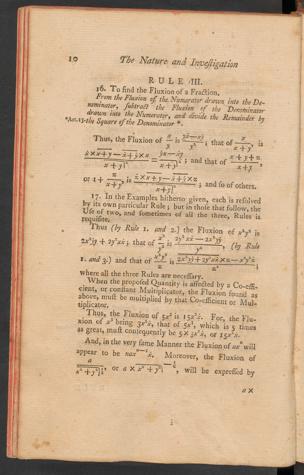 10 The Nature and Investigation
RULE III.
16. To find the Fluxion of a Fraction,
From the Fluxion of the Numerator drawn into the De-
nominator, subtract the Fluxion of the Denominator
drawn into the Numerator, and divide the Remainder by
*Art. 13. the Square of the Denominator *.
Thus, the Fluxion of x/y is (yẋ−xẏ)/y²; that of x/(x+y), is
; and that of (x+y+z)/(x+y),
or 1 + z/(x+y), is ; and so of others.
17. In the Examples hitherto given, each is resolved
by its own particular Rule; but in those that follow, the
Use of two, and sometimes of all the three, Rules is
requisite.
Thus (by Rule 1. and 2.) the Fluxion of x²y² is
2x²yẏ + 2y²xẋ; that of x²/y² is (2y²xẋ − 2x²yẏ)/y⁴, (by Rule
1. and 3.) and that of x²y²/z is ((2x²yẏ + 2y²xẋ) × z − x²y²ż)/z²,
where all the three Rules are necessary.
When the proposed Quantity is affected by a Co-effi-
cient, or constant Multiplicator, the Fluxion found as
above, must be multiplied by that Co-efficient or Mul-
tiplicator.
Thus, the Fluxion of 5x³ is 15x²ẋ. For, the Flu-
xion of x³ being 3x²ẋ, that of 5x³, which is 5 times
as great, must consequently be 5 × 3x²ẋ, or 15x²ẋ.
And, in the very same Manner the Fluxion of axⁿ will
appear to be naxⁿ⁻¹ẋ. Moreover, the Fluxion of
, or , will be expressed by
a ×